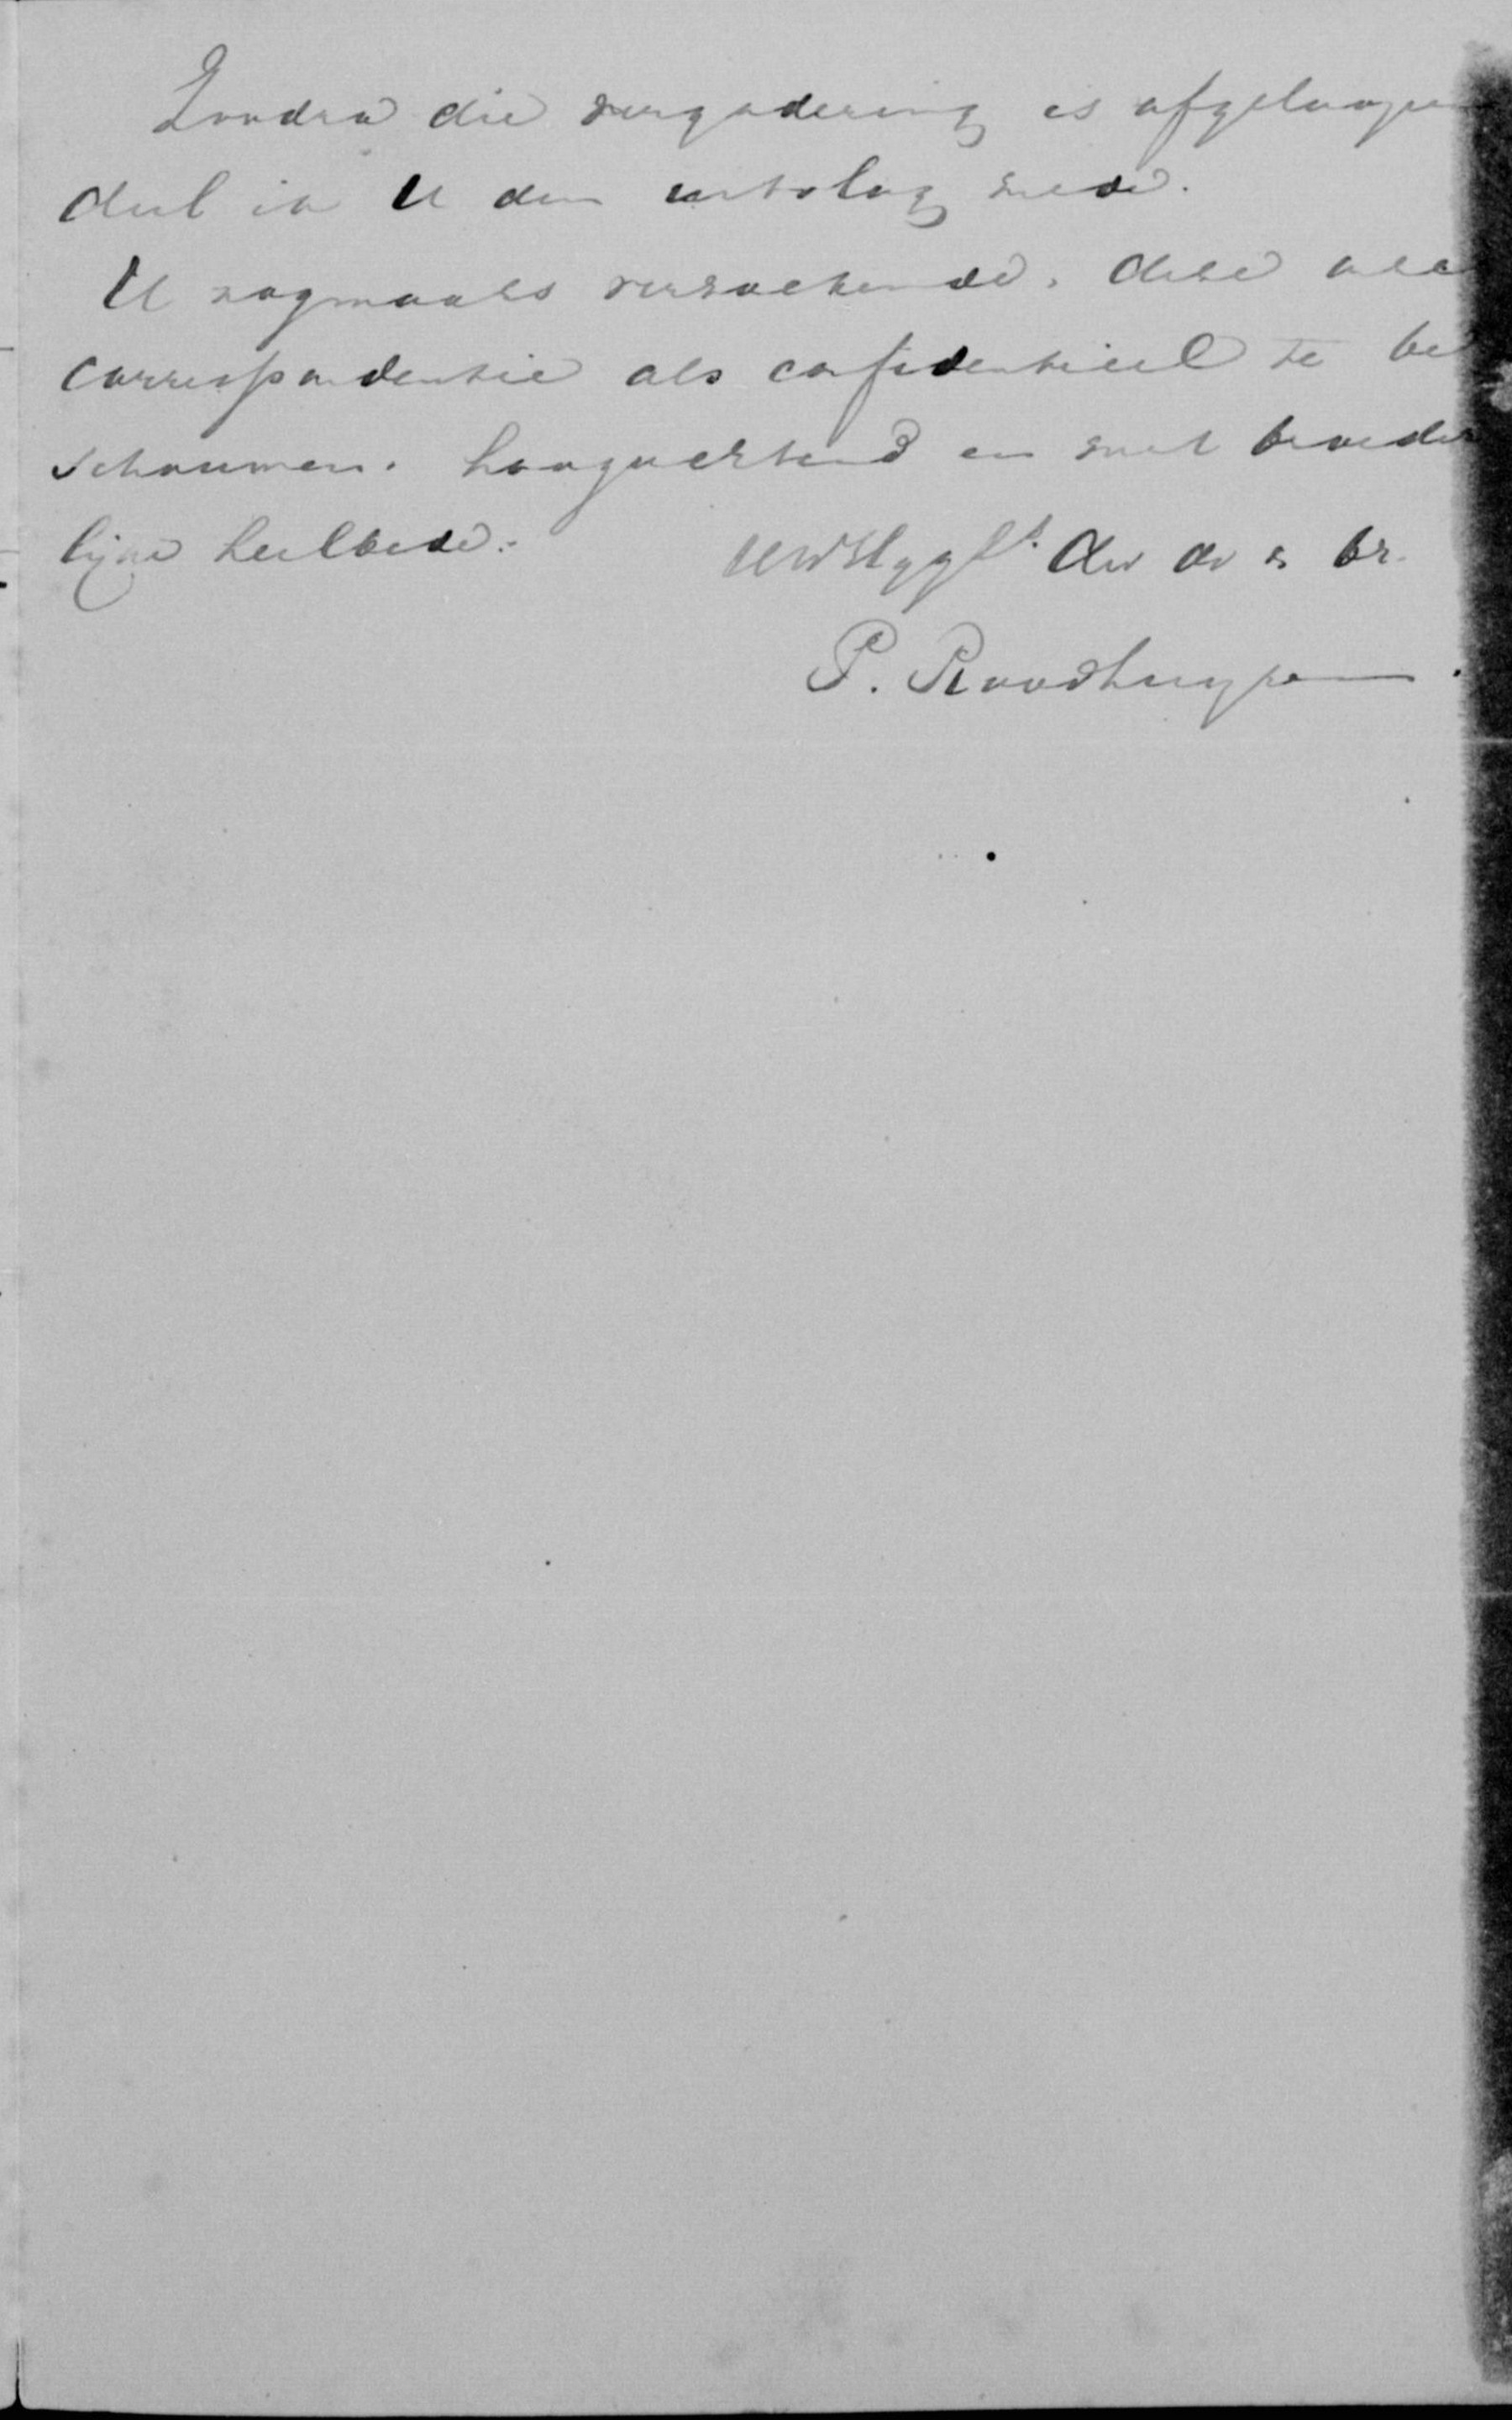 Zoodra die vergadering is afgeloopen
deel ik U den uitslag mede.
U nogmaals verzoekende, deze
correspondentie als confidentieel te be
schouwen. hoogachtend en met broeder
lijke heilbede.
UWHggl. dw dr & br.
P. Roodhuyzen